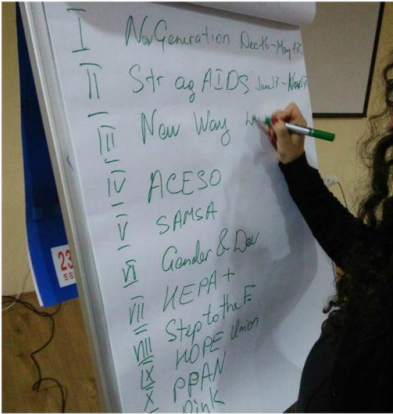 I New Generation Dec 16 - May 18
II Str ag AIDS Jan 17 -
III New Way
IV ACESO
V SAMSA
VI Gender & Dev
VII HEPA +
VIII Step to the F.
IX HOPE Union
X PPAN
Pink
23